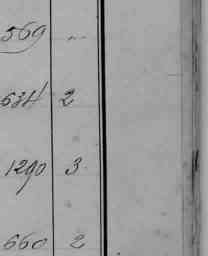 569 ..
634 2
1290 3
660 2